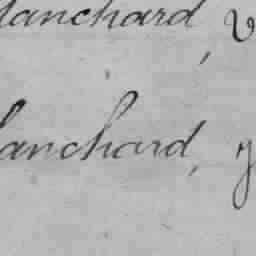 lanchard, v
lanchard, y